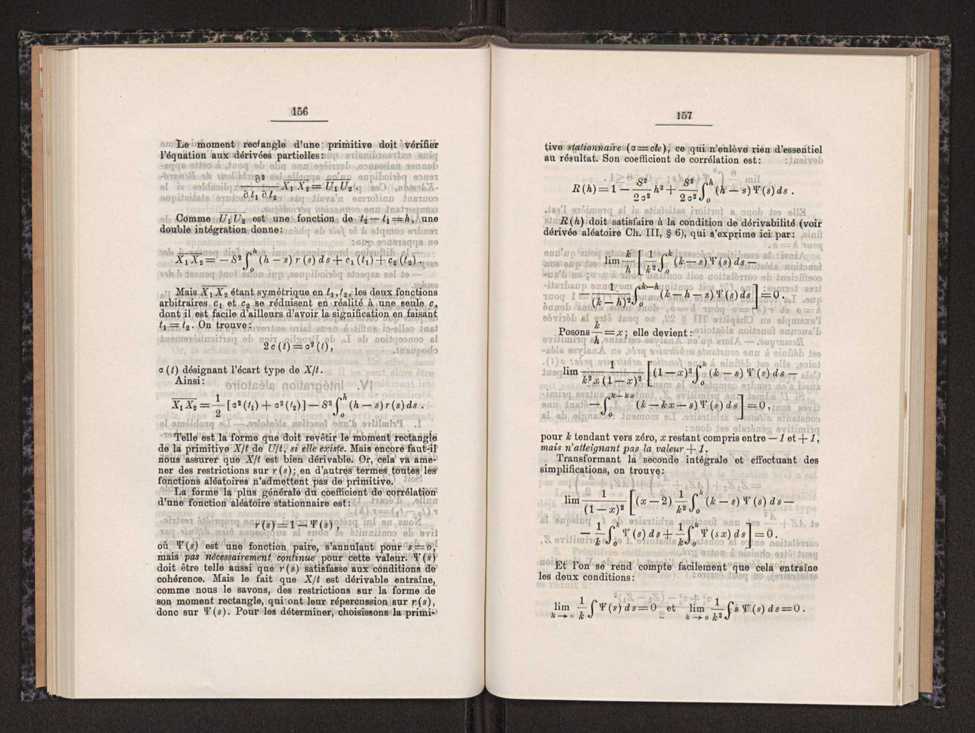 156
Le moment rectangle d'une primitive doit vérifier
l'équation aux dérivées partielles:
∂² / ∂t₁ ∂t₂ X₁ X₂ = U₁ U₂ .
Comme U₁U₂ est une fonction de t₁ — t₂ = h, une
double intégration donne:
X₁ X₂ = — S² ∫₀ʰ (h — s) r (s) ds + c₁ (t₁) + c₂ (t₂) .
Mais X₁ X₂ étant symétrique en t₁, t₂, les deux fonctions
arbitraires c₁ et c₂ se réduisent en réalité à une seule c,
dont il est facile d'ailleurs d'avoir la signification en faisant
t₁ = t₂. On trouve:
2 c (t) = σ² (t),
σ (t) désignant l'écart type de X/t.
Ainsi:
X₁ X₂ = 1/2 [ σ² (t₁) + σ² (t₂)] — S² ∫₀ʰ (h — s) r (s) ds .
Telle est la forme que doit revêtir le moment rectangle
de la primitive X/t de U/t, si elle existe. Mais encore faut-il
nous assurer que X/t est bien dérivable. Or, cela va ame-
ner des restrictions sur r (s); en d'autres termes toutes les
fonctions aléatoires n'admettent pas de primitive.
La forme la plus générale du coefficient de corrélation
d'une fonction aléatoire stationnaire est:
r (s) = 1 — Ψ (s) ,
où Ψ (s) est une fonction paire, s'annulant pour s = o,
mais pas nécessairement continue pour cette valeur. Ψ (s)
doit être telle aussi que r (s) satisfasse aux conditions de
cohérence. Mais le fait que X/t est dérivable entraîne,
comme nous le savons, des restrictions sur la forme de
son moment rectangle, qui ont leur répercussion sur r (s),
donc sur Ψ (s). Pour les déterminer, choisissons la primi-
157
tive stationnaire (σ = cte), ce qui n'enlève rien d'essentiel
au résultat. Son coefficient de corrélation est:
R (h) = 1 — S²/2σ² h² + S²/2σ² ∫₀ʰ (h — s) Ψ (s) ds .
R (h) doit satisfaire à la condition de dérivabilité (voir
dérivée aléatoire Ch. III, § 6), qui s'exprime ici par:
lim k/h [ 1/k² ∫₀ᵏ (k — s) Ψ (s) ds —
— 1/(k — h)² ∫₀ᵏ⁻ʰ (k — h — s) Ψ (s) ds ] = 0 .
Posons k/h = x; elle devient:
lim 1/k² x (1 — x)² [ (1 — x)² ∫₀ᵏ (k — s) Ψ (s) ds —
— ∫₀ᵏ⁻ᵏˣ (k — kx — s) Ψ (s) ds ] = 0 ,
pour k tendant vers zéro, x restant compris entre — 1 et + 1,
mais n'atteignant pas la valeur + 1.
Transformant la seconde intégrale et effectuant des
simplifications, on trouve:
lim 1/(1 — x)² [ (x — 2) 1/k² ∫₀ᵏ (k — s) Ψ (s) ds —
— 1/k ∫₀ᵏ Ψ (s) ds + 1/k ∫₀ᵏ Ψ (sx) ds ] = 0 .
Et l'on se rend compte facilement que cela entraîne
les deux conditions:
lim k → o 1/k ∫ Ψ (s) ds = 0 et lim k → o 1/k² ∫ s Ψ (s) ds = 0 .